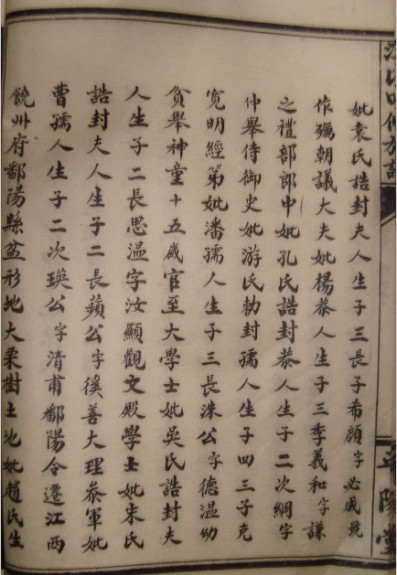 妣袁氏誥封夫人生子三長子希顔字必威號
作彌朝議大夫妣楊恭人生子三季義和字謙
之禮部郎中妣孔氏誥封恭人生子二次綱字
仲舉侍御史妣游氏勅封孺人生子四三子克
寛明經第妣潘孺人生子三長洙公字德溫幼
貧舉神童十五歲官至大學士妣吳氏誥封夫
人生子二長思溫字汝顯觀文殿學士妣朱氏
誥封夫人生子二長蘋公字徯善大理叅軍妣
曹孺人生子二次瑛公字清甫鄱陽令遷江西
饒州府鄱陽縣盆形地大栗樹土地妣趙氏生
汪氏四修族譜
平陽堂